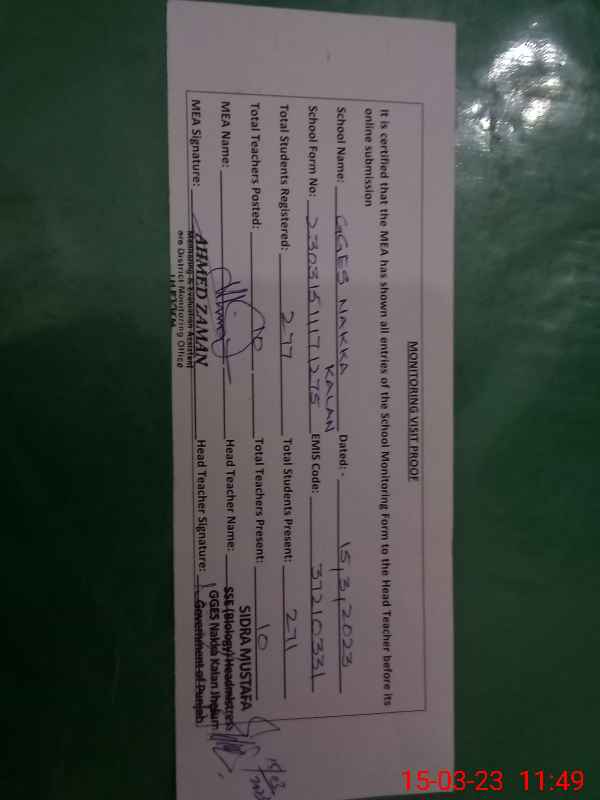 MONITORING VISIT PROOF
It is certified that the MEA has shown all entries of the School Monitoring Form to the Head Teacher before its
online submission
School Name: GGES NAKKA KALAN Dated: - 15,3,2023
School Form No: EMIS Code: 37210331
Total Students Registered: 277 Total Students Present: 271
Total Teachers Posted: 10 Total Teachers Present: 10
MEA Name: Head Teacher Name:
MEA Signature: Head Teacher Signature:
AHMED ZAMAN
Monitoring & Evaluation Assistant
District Monitoring Office
SIDRA MUSTAFA
SSE (Biology) Headmistress
GGES Nakka Kalan Jhelum
Government of Punjab
15-03-23 11:49